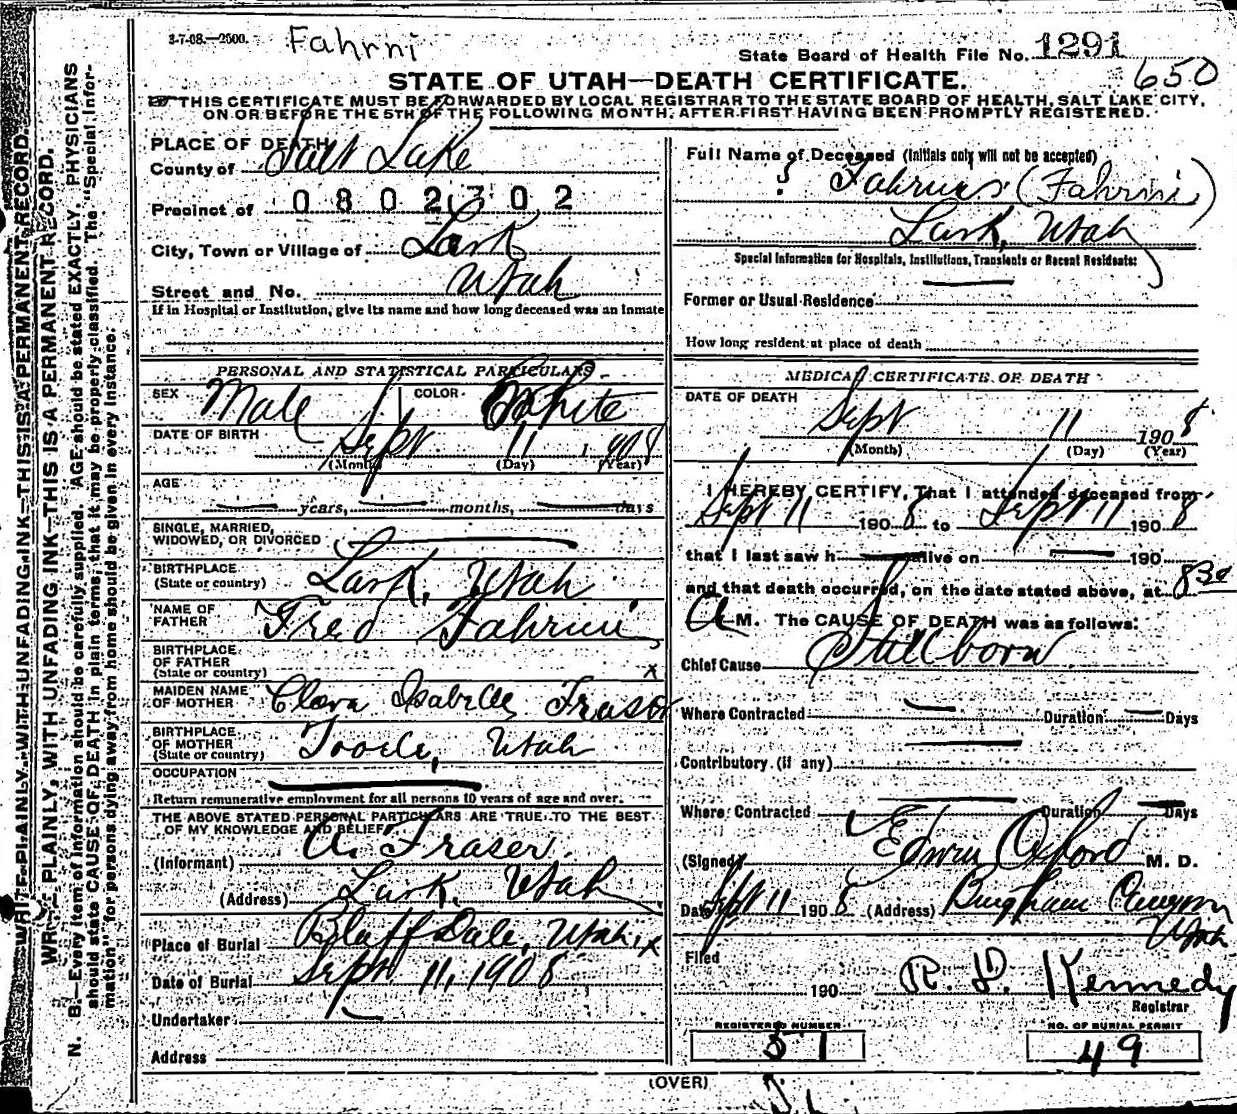 3-7-08.—2500.
Fahrni
State Board of Health File No. 1291
650
STATE OF UTAH—DEATH CERTIFICATE.
THIS CERTIFICATE MUST BE FORWARDED BY LOCAL REGISTRAR TO THE STATE BOARD OF HEALTH, SALT LAKE CITY,
ON OR BEFORE THE 5TH OF THE FOLLOWING MONTH, AFTER FIRST HAVING BEEN PROMPTLY REGISTERED.
PLACE OF DEATH
County of Salt Lake
Precinct of 0802302
City, Town or Village of Lark
Utah
Street and No.
If in Hospital or Institution, give its name and how long deceased was an inmate
PERSONAL AND STATISTICAL PARTICULARS
SEX Male COLOR White
DATE OF BIRTH Sept 11 1908
(Month) (Day) (Year)
AGE
years, months, days
SINGLE, MARRIED,
WIDOWED, OR DIVORCED
BIRTHPLACE
(State or country) Lark, Utah
NAME OF
FATHER Fred Fahrni
BIRTHPLACE
OF FATHER
(State or country) x
MAIDEN NAME
OF MOTHER Clara Isabelle Fraser
BIRTHPLACE
OF MOTHER
(State or country) Tooele, Utah
OCCUPATION
Return remunerative employment for all persons 10 years of age and over.
THE ABOVE STATED PERSONAL PARTICULARS ARE TRUE TO THE BEST
OF MY KNOWLEDGE AND BELIEF
(Informant) A. Fraser.
(Address) Lark, Utah
Place of Burial Bluff Dale, Utah x
Date of Burial Sept. 11, 1908
Undertaker
Address
Full Name of Deceased (Initials only will not be accepted)
? Fahrnis (Fahrni)
Lark, Utah
Special Information for Hospitals, Institutions, Transients or Recent Residents:
Former or Usual Residence
How long resident at place of death
MEDICAL CERTIFICATE OF DEATH
DATE OF DEATH
Sept 11 1908
(Month) (Day) (Year)
I HEREBY CERTIFY, That I attended deceased from
Sept 11 1908 to Sept 11 1908
that I last saw h alive on 190
and that death occurred, on the date stated above, at 830
A M. The CAUSE OF DEATH was as follows:
Chief Cause Stillborn
Where Contracted Duration Days
Contributory (if any)
Where Contracted Duration Days
(Signed) Edwin Oxford M. D.
Date Sept 11 1908 (Address) Bingham Canyon
Utah
Filed
190 R. D. Kennedy
Registrar
REGISTERED NUMBER
51
NO. OF BURIAL PERMIT
49
(OVER)
WRITE PLAINLY, WITH UNFADING INK—THIS IS A PERMANENT RECORD.
WRITE PLAINLY, WITH UNFADING INK—THIS IS A PERMANENT RECORD.
N. B.—Every item of information should be carefully supplied. AGE should be stated EXACTLY. PHYSICIANS
should state CAUSE OF DEATH in plain terms, that it may be properly classified. The "Special Infor-
mation" for persons dying away from home should be given in every instance.